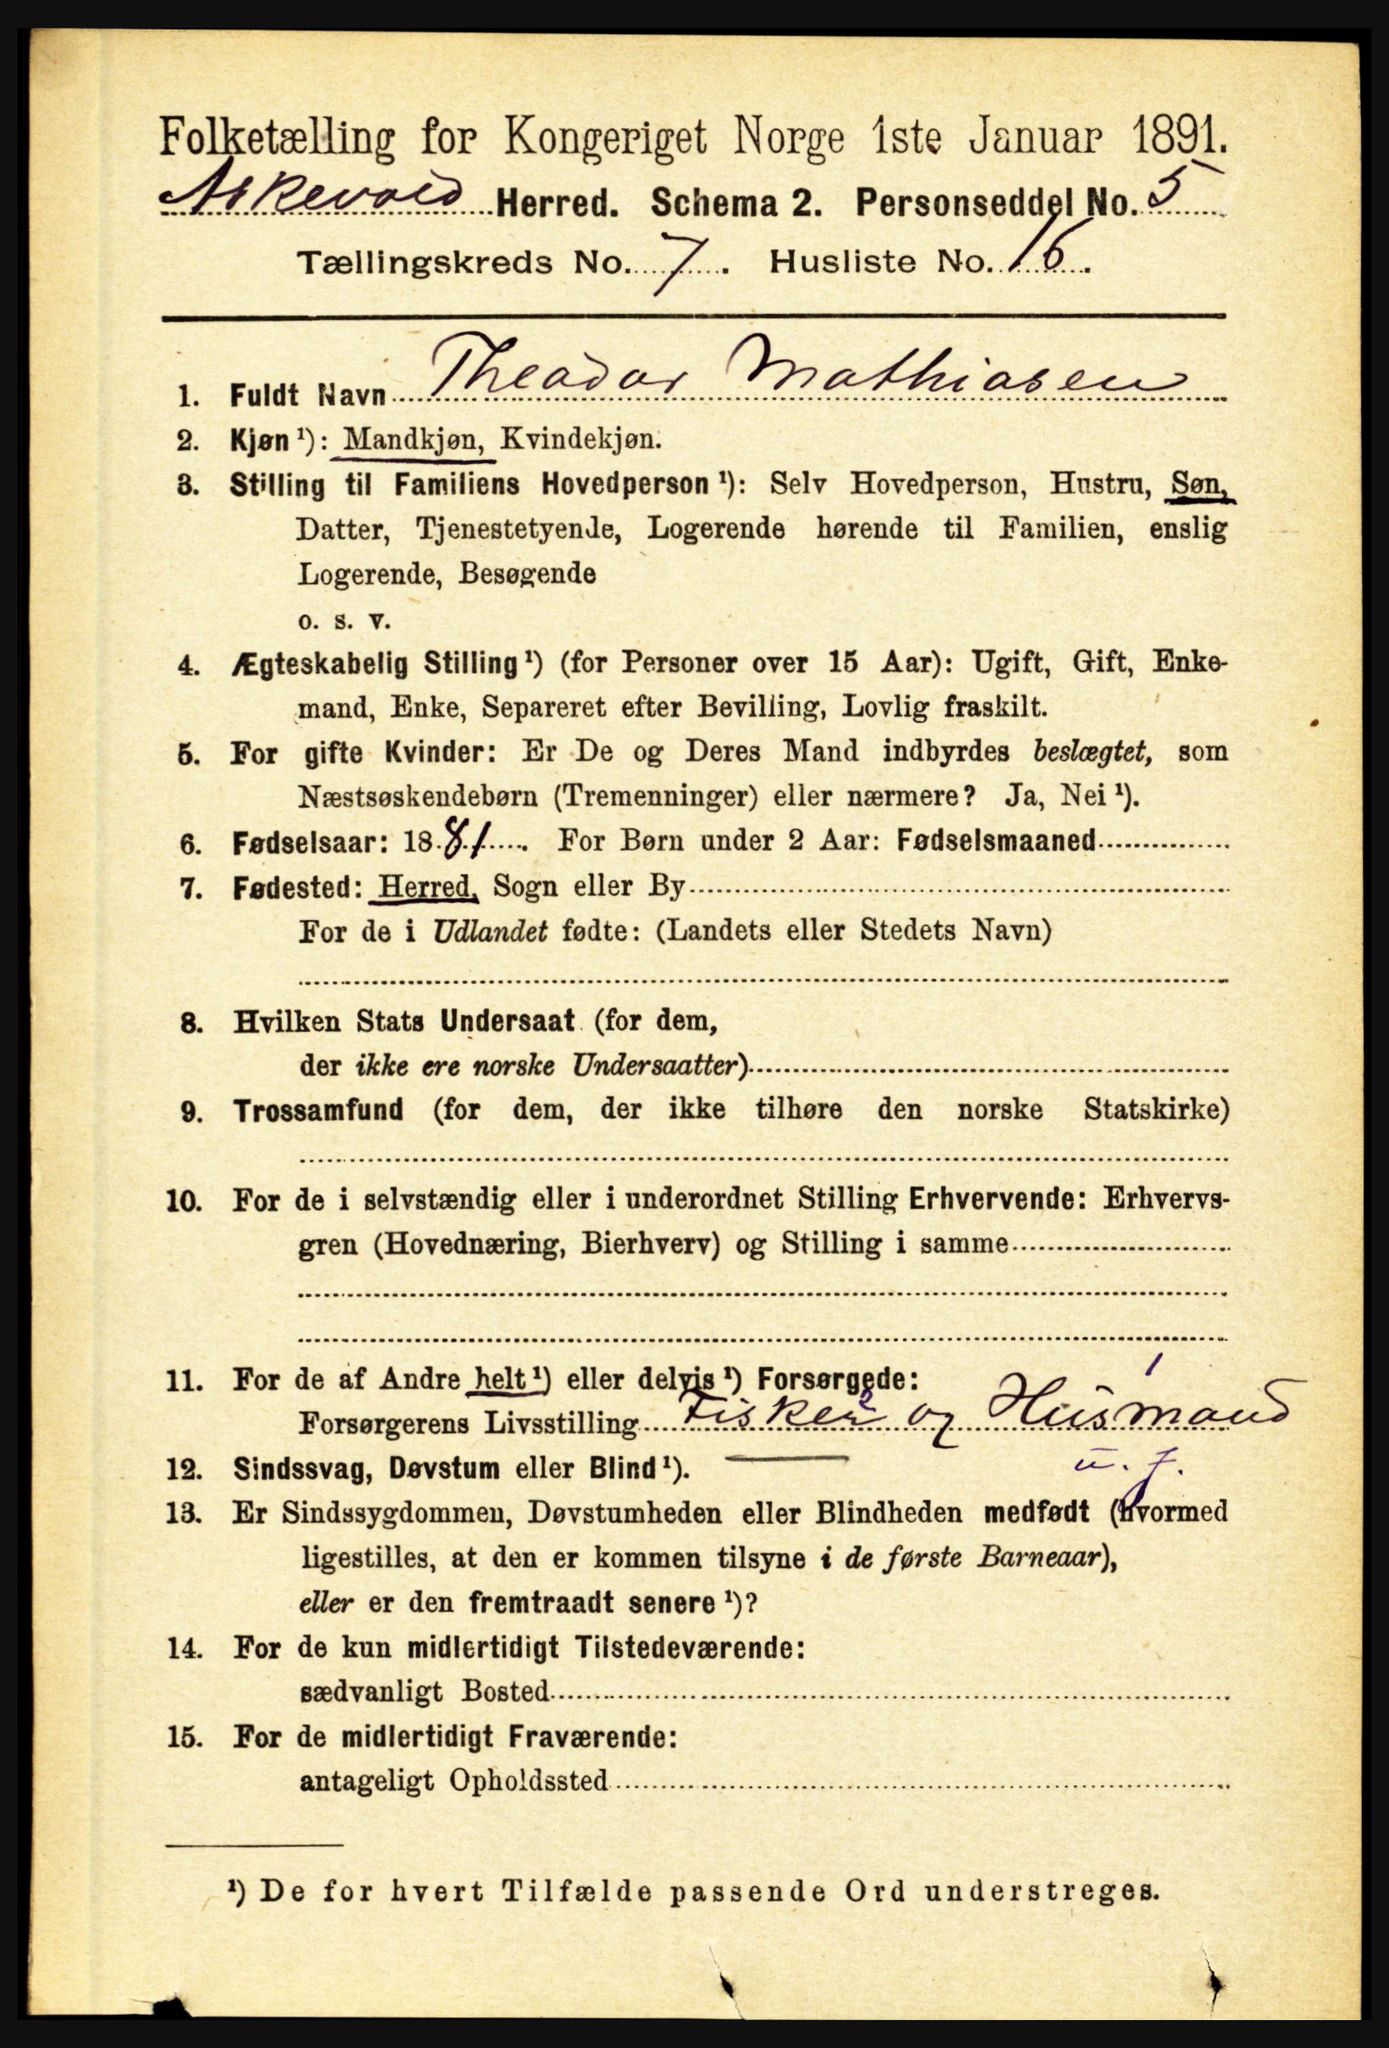 Folketælling for Kongeriget Norge 1ste Januar 1891.
Askevold Herred. Schema 2. Personseddel No. 5
Tællingskreds No. 7. Husliste No. 16.
1. Fuldt Navn Theodor Mathiasen
2. Kjøn ¹): Mandkjøn, Kvindekjøn.
3. Stilling til Familiens Hovedperson ¹): Selv Hovedperson, Hustru, Søn,
Datter, Tjenestetyende, Logerende hørende til Familien, enslig
Logerende, Besøgende
o. s. v.
4. Ægteskabelig Stilling ¹) (for Personer over 15 Aar): Ugift, Gift, Enke-
mand, Enke, Separeret efter Bevilling, Lovlig fraskilt.
5. For gifte Kvinder: Er De og Deres Mand indbyrdes beslægtet, som
Næstsøskendebørn (Tremenninger) eller nærmere? Ja, Nei ¹).
6. Fødselsaar: 1881. For Børn under 2 Aar: Fødselsmaaned
7. Fødested: Herred, Sogn eller By
For de i Udlandet fødte: (Landets eller Stedets Navn)
8. Hvilken Stats Undersaat (for dem,
der ikke ere norske Undersaatter)
9. Trossamfund (for dem, der ikke tilhøre den norske Statskirke)
10. For de i selvstændig eller i underordnet Stilling Erhvervende: Erhvervs-
gren (Hovednæring, Bierhverv) og Stilling i samme
11. For de af Andre helt ¹) eller delvis ¹) Forsørgede: 1
Forsørgerens Livsstilling Fisker 2 og Husmand
12. Sindssvag, Døvstum eller Blind ¹). u. j.
13. Er Sindssygdommen, Døvstumheden eller Blindheden medfødt (hvormed
ligestilles, at den er kommen tilsyne i de første Barneaar),
eller er den fremtraadt senere ¹)?
14. For de kun midlertidigt Tilstedeværende:
sædvanligt Bosted
15. For de midlertidigt Fraværende:
antageligt Opholdssted
¹) De for hvert Tilfælde passende Ord understreges.